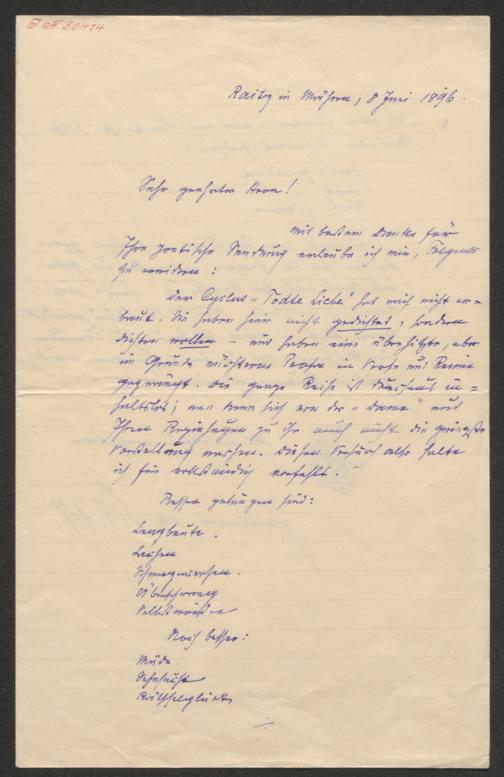 I N 50414
Raitz in Mähren, 8 Juni 1896.
Sehr geehrter Herr!
Mit bestem Danke für
Ihre poetische Sendung erlaube ich mir, Folgendes
zu erwidern:
Der Cyclus „Todte Liebe" hat mich nicht er=
baut. Sie haben hier nicht gedichtet, sondern
dichten wollen – und haben eine überhitzte, aber
im Grunde nüchterne Prosa in Verse und Reime
gezwängt. Die ganze Reihe ist durchaus in=
haltslos; man kann sich von der „Dame" und
Ihren Beziehungen zu ihr auch nicht die geringste
Vorstellung machen. Diesen Versuch also halte
ich für vollständig verfehlt.
Besser gelungen sind:
Lenzbeute.
Leichen
Überschwang
Selbstmörder
Noch besser:
Müde.
Sehnsucht